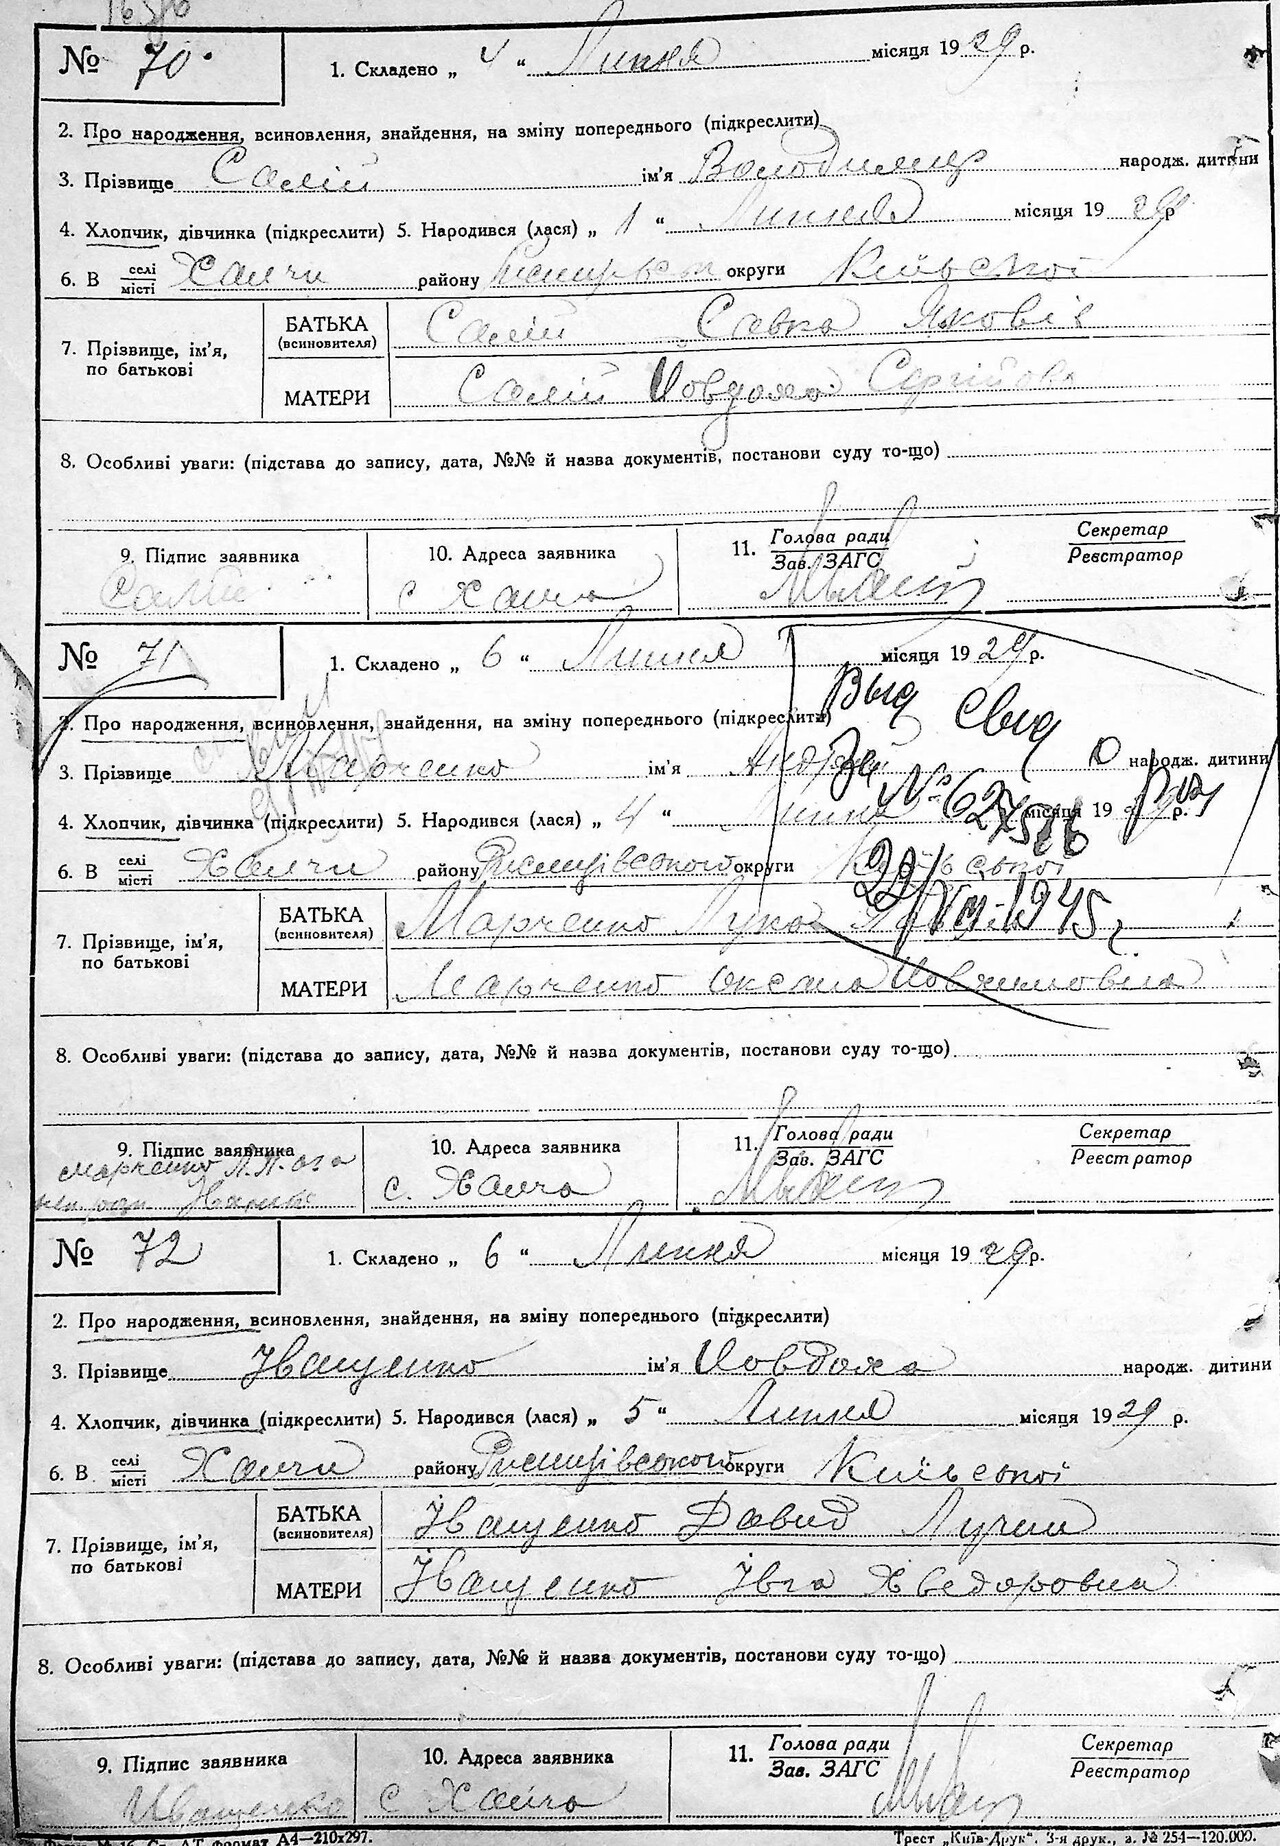 № 70. 1. Складено „ 4 “ Липня місяця 19 29 р.
2. Про народження, всиновлення, знайдення, на зміну попереднього (підкреслити)
3. Прізвище Салій ім'я Володимир народж. дитини
4. Хлопчик, дівчинка (підкреслити) 5. Народився (лася) „ 1 “ Липня місяця 19 29 р
6. В селі місті Халчи району округи Київської
7. Прізвище, ім'я, по батькові
БАТЬКА (всиновителя) Салій Савка Яковів
МАТЕРИ Салій Иовдоха Сергійова
8. Особливі уваги: (підстава до запису, дата, №№ й назва документів, постанови суду то-що)
9. Підпис заявника 10. Адреса заявника 11. Голова ради Зав. ЗАГС Секретар Реєстратор
Салій с Халча
№ 71 1. Складено „ 6 “ Липня місяця 19 29 р.
2. Про народження, всиновлення, знайдення, на зміну попереднього (підкреслити)
Выд Свид
3. Прізвище Марченко ім'я Андрій народж. дитини
За № о
4. Хлопчик, дівчинка (підкреслити) 5. Народився (лася) „ 4 “ Липня місяця 19 29 р.
6. В селі місті Халчи району Ржищівського округи Київської
22/VIII 1945 г
7. Прізвище, ім'я, по батькові
БАТЬКА (всиновителя) Марченко Лука
МАТЕРИ Марченко Оксана Иовхимовна
8. Особливі уваги: (підстава до запису, дата, №№ й назва документів, постанови суду то-що)
9. Підпис заявника 10. Адреса заявника 11. Голова ради Зав. ЗАГС Секретар Реєстратор
Марченко с. Халча
№ 72 1. Складено „ 6 “ Липня місяця 19 29 р.
2. Про народження, всиновлення, знайдення, на зміну попереднього (підкреслити)
3. Прізвище Іващенко ім'я Иовдоха народж. дитини
4. Хлопчик, дівчинка (підкреслити) 5. Народився (лася) „ 5 “ Липня місяця 19 29 р.
6. В селі місті Халчи району Ржищівського округи Київської
7. Прізвище, ім'я, по батькові
БАТЬКА (всиновителя) Іващенко Давид Лучин
МАТЕРИ Іващенко Івга Хведоровна
8. Особливі уваги: (підстава до запису, дата, №№ й назва документів, постанови суду то-що)
9. Підпис заявника 10. Адреса заявника 11. Голова ради Зав. ЗАГС Секретар Реєстратор
Иващенко с Халча
формат А4—210x297. Трест „Київ-Друк“. 3-я друк., з. № 254—120.000.